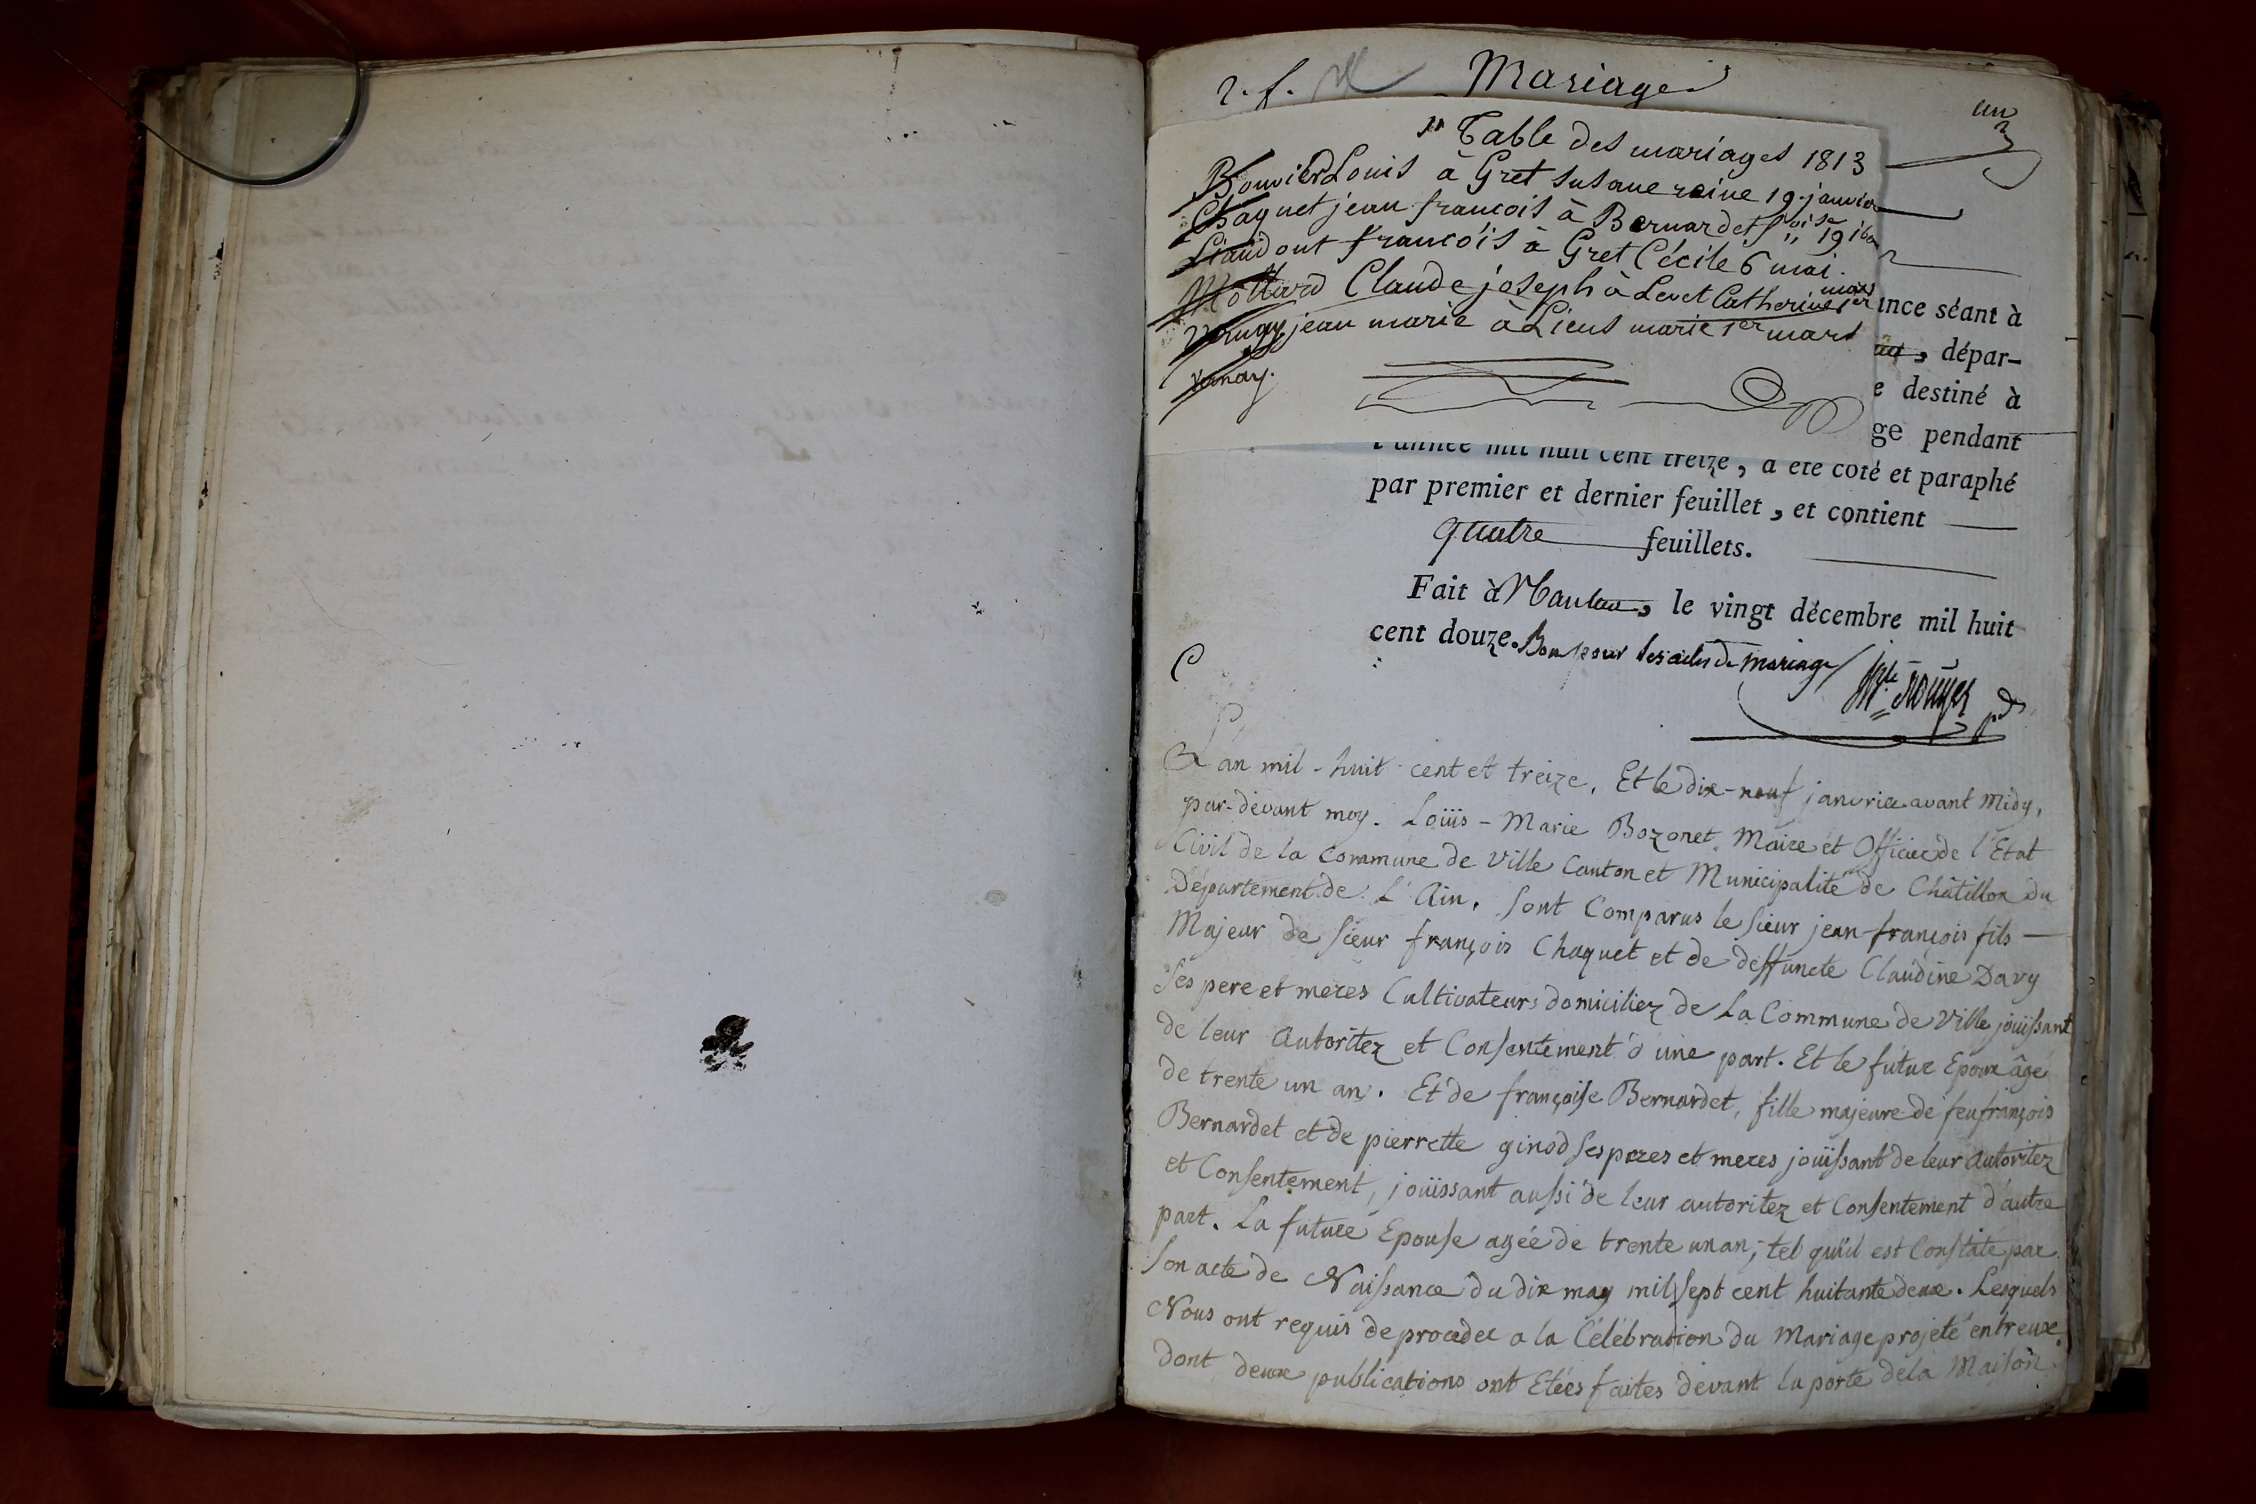 2. f. Mariages
un
Table des mariages 1813
Bouvier Louis à Gret susane reine 19 janvier
Chaquet jean francois à Bernardet f.oise 19 ibid
Liaudout francois à Gret Cécile 6 mai.
Mottard Claude joseph à Levet Catherine 1er mars
jean marie à Liens marie 1er mars
vernay.
ance séant à
, dépar-
e destiné à
ge pendant
l'année mil huit cent treize, a été coté et paraphé
par premier et dernier feuillet, et contient
quatre feuillets.
Fait à Nantua, le vingt décembre mil huit
cent douze. Bon pour les actes de mariage
L'an mil-huit cent et treize. Et le dix-neuf janvrier avant Midy,
par-devant moy. Loüis-Marie Bozonet Maire et Officier de l'Etat
Civil de la Commune de Ville Canton et Municipalité de Châtillon du
Département de L'Ain. Sont Comparus le Sieur jean-françois fils
Majeur de sieur françois Chaquet et de deffuncte Claudine Davy
ses pere et meres Cultivateurs domiciliez de La Commune de Ville joüissant
de leur Autoritez et Consentement d'une part. Et le futur Epoux âgé
de trente un an. Et de françoise Bernardet, fille majeure de feu françois
Bernardet et de pierrette ginod ses peres et meres joüissant de leur autoritez
et Consentement, joüissant aussi de leur autoritez et Consentement d'autre
part. La future Epouse agéé de trente un an; tel qu'il est Constaté par
son acte de Naissance du dix may mil sept cent huitante deux. Lesquels
Nous ont requis de proceder a la Célébration du Mariage projeté entreux
dont deux publications ont Etées faites devant la porte de la Maison